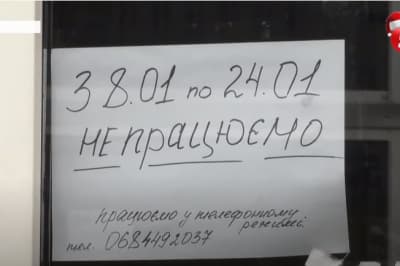 З 8.01 по 24.01
НЕ ПРАЦЮЄМО
працюємо у телефонному
режимі.
тел. 0684492037